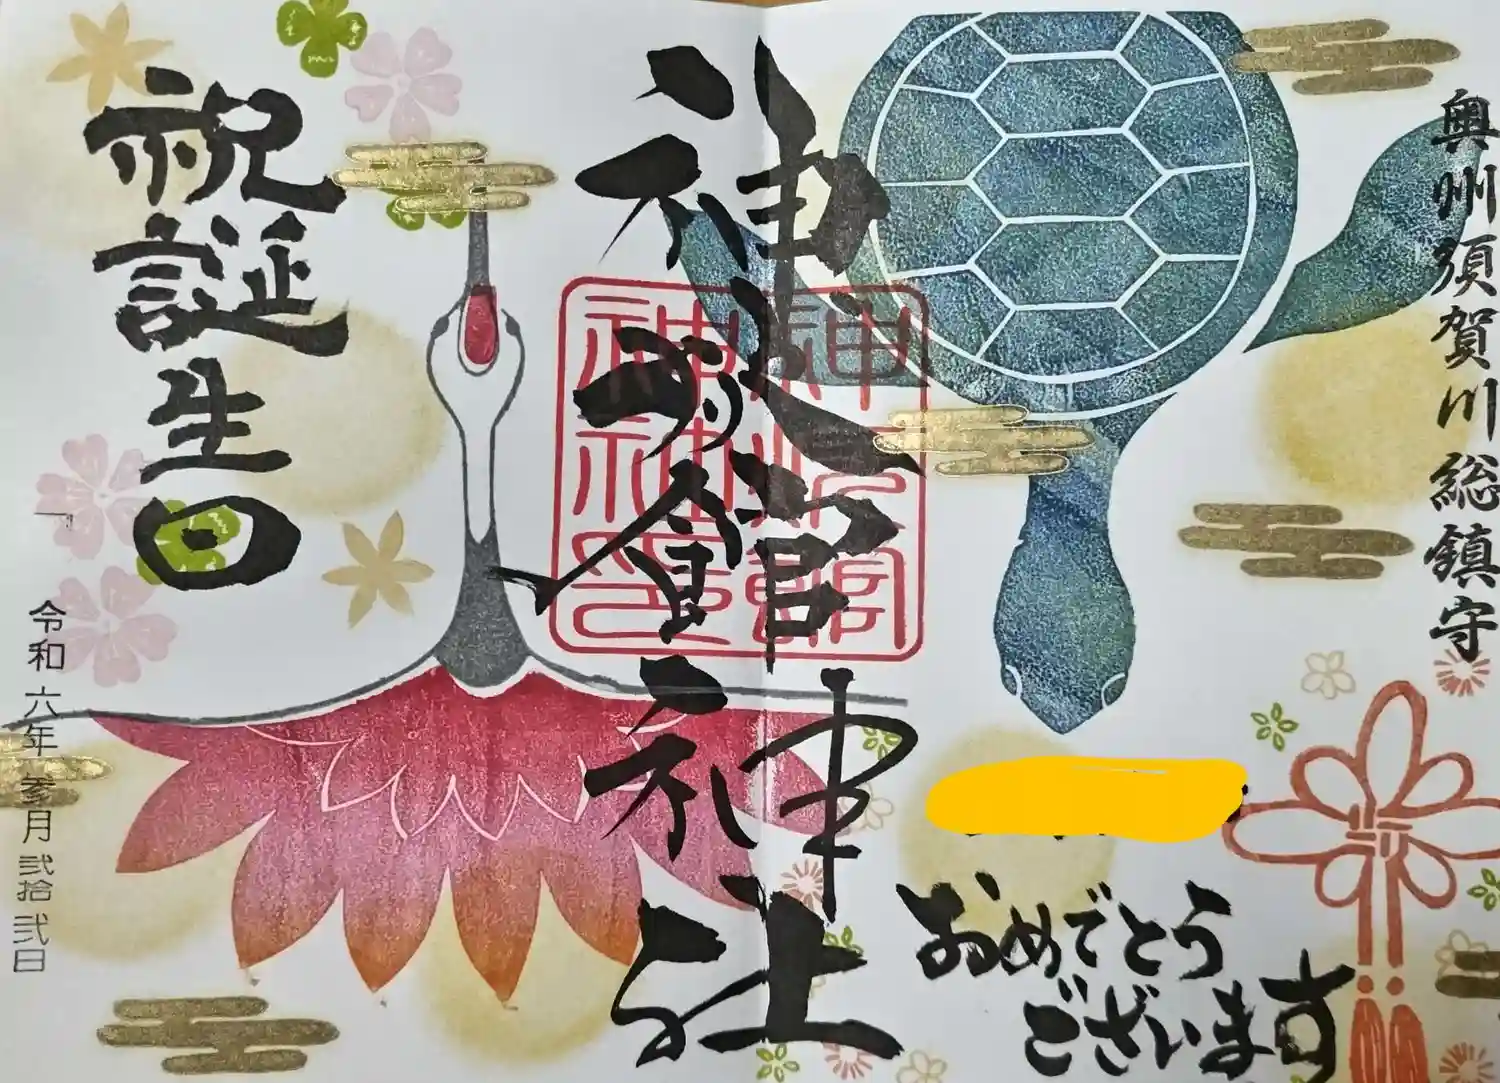 奥州須賀川総鎮守
神炊館神社
神炊館
神社印
おめでとう
ございます
祝誕生日
令和六年参月弐拾弐日